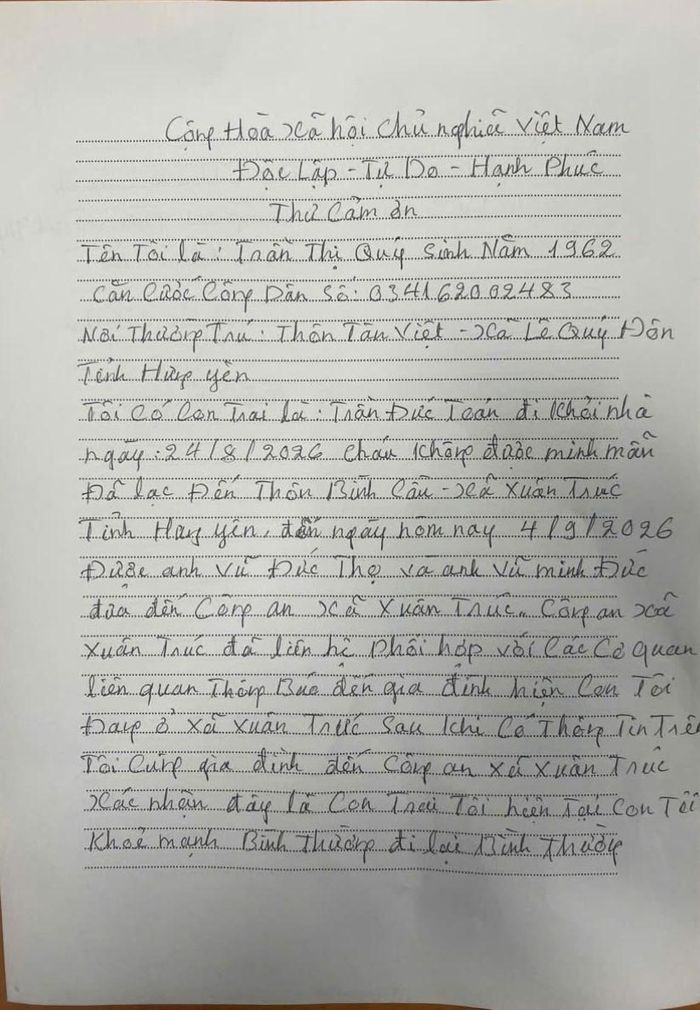 Cộng Hoà Xã hội Chủ nghiã Việt Nam
Độc Lập - Tự Do - Hạnh Phúc
Thư Cảm ơn
Tên Tôi là : Trần Thị Quý Sinh Năm 1962
Căn Cước Công Dân Số : 034162002483
Nơi Thường Trú : Thôn Tân Việt - Xã Lê Quý Đôn
Tỉnh Hưng yên
Tôi Có Con Trai là : Trần Đức Toán đi khỏi nhà
ngày : 24/8/2026 Cháu không được minh mẫn
Đã lạc Đến Thôn Bình Cầu - Xã Xuân Trúc
Tỉnh Hưng yên, đến ngày hôm nay 4/9/2026
Được anh Vũ Đức Thọ và anh Vũ minh Đức
đưa đến Công an Xã Xuân Trúc. Công an Xã
Xuân Trúc đã liên hệ Phối hợp với Các Cơ quan
liên quan Thông Báo đến gia đình hiện Con Tôi
Đang ở Xã Xuân Trúc Sau khi Có Thông Tin Trên
Tôi Cùng gia đình đến Công an Xã Xuân Trúc
Xác nhận đây là Con Trai Tôi hiện Tại Con Tôi
Khoẻ mạnh Bình Thường đi lại Bình Thường